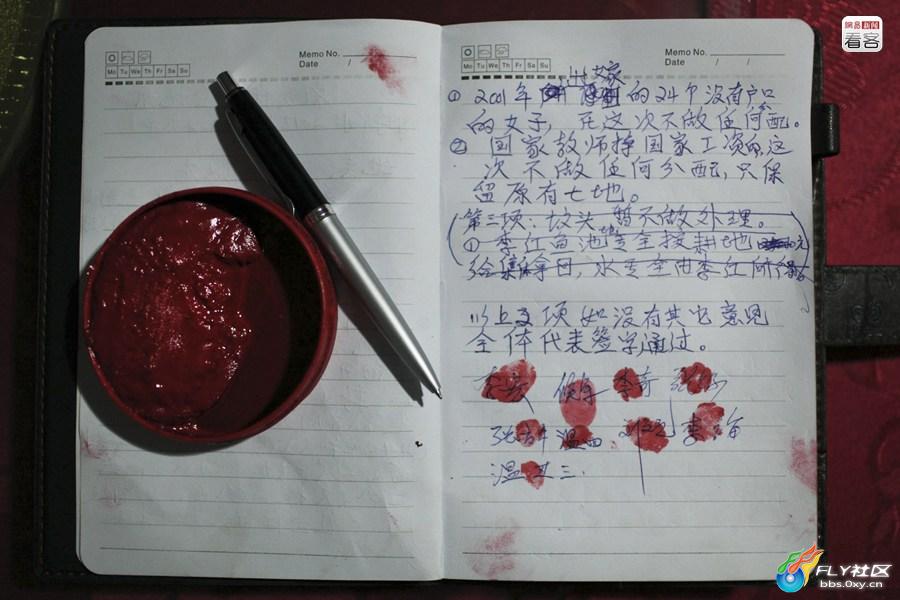 网易新闻
看客
Memo No.
Date / /
Mo Tu We Th Fr Sa Su
Memo No.
Date / /
Mo Tu We Th Fr Sa Su
出嫁
① 2001年 的24个没有户口
的女子，在这次不做任何分配。
② 国家教师挣国家工资的，这
次不做任何分配，只保
留原有土地。
第三项：坟头暂不做处理。
① 李红鱼池 全按耕地
给集体 水 全由李红
以上 项如没有其它意见
全体代表签字通过。
李奇
温
李
温 三
FLY社区
bbs.0xy.cn